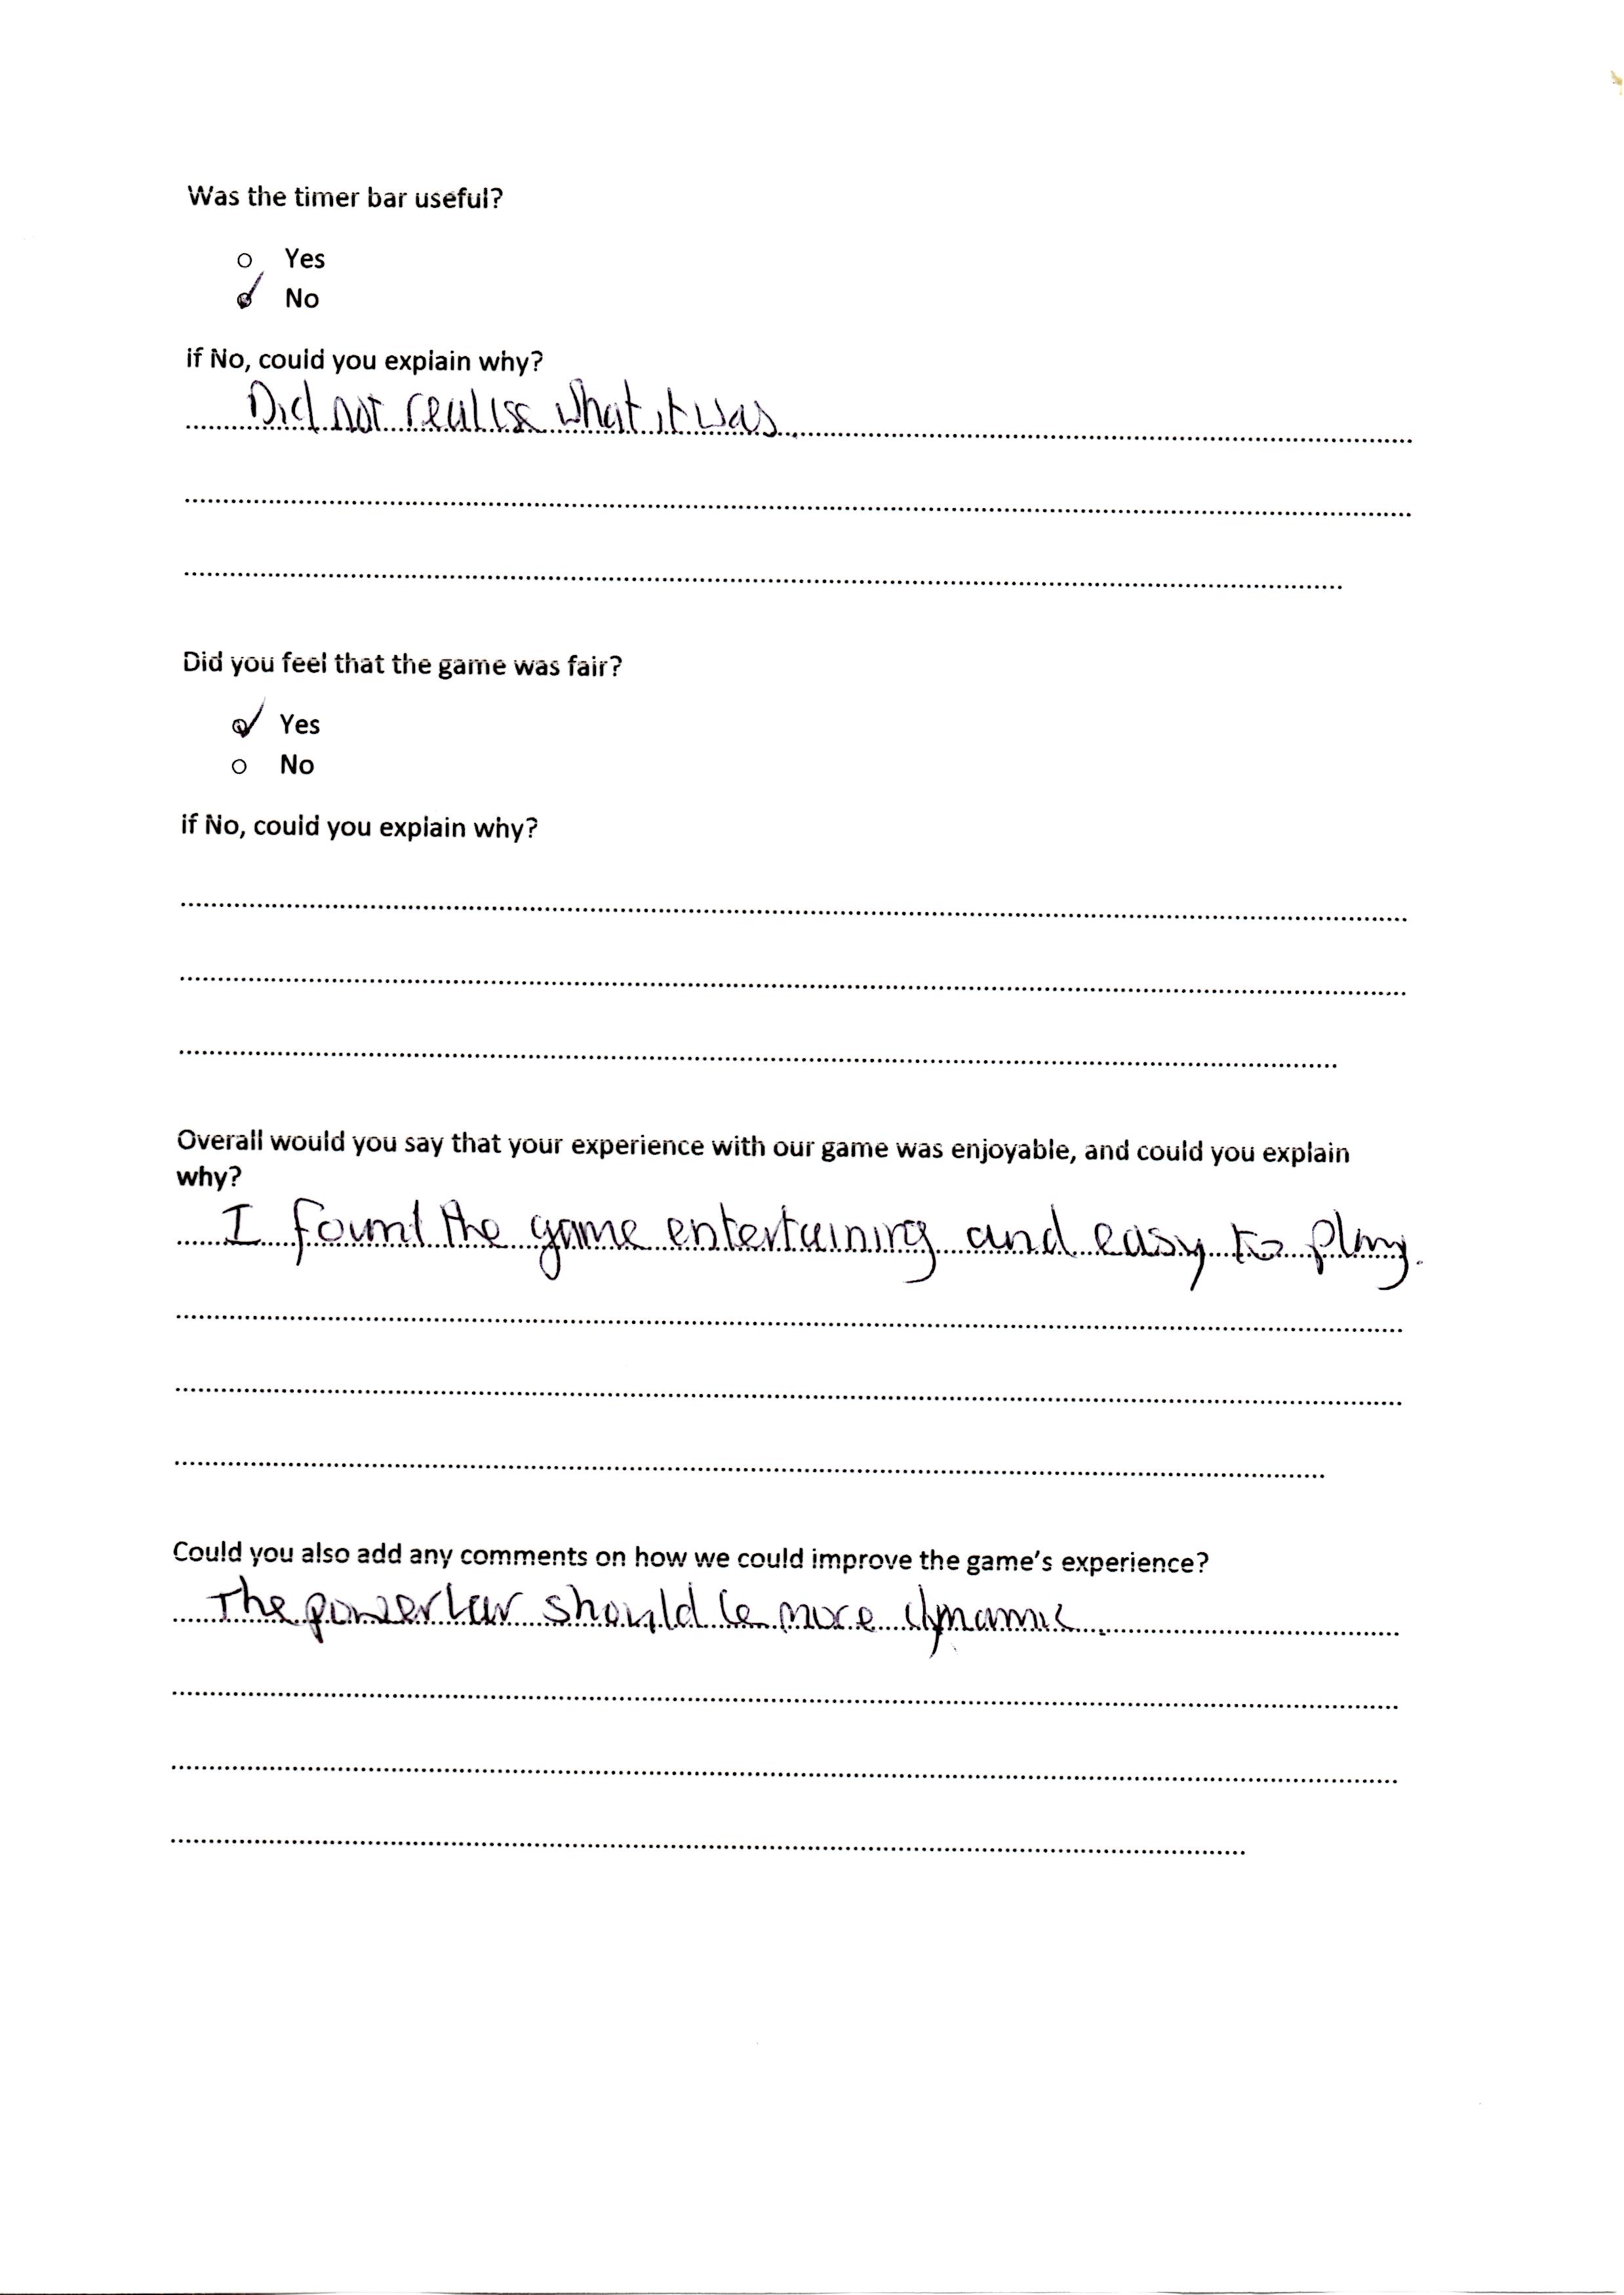 Was the timer bar useful?
Yes
No
if No, could you explain why?
Did not realise what it was.
Did you feel that the game was fair?
Yes
No
if No, could you explain why?
Overall would you say that your experience with our game was enjoyable, and could you explain
why?
I found the game entertaining and easy to play.
Could you also add any comments on how we could improve the game's experience?
The powerbar should be more dynamic.